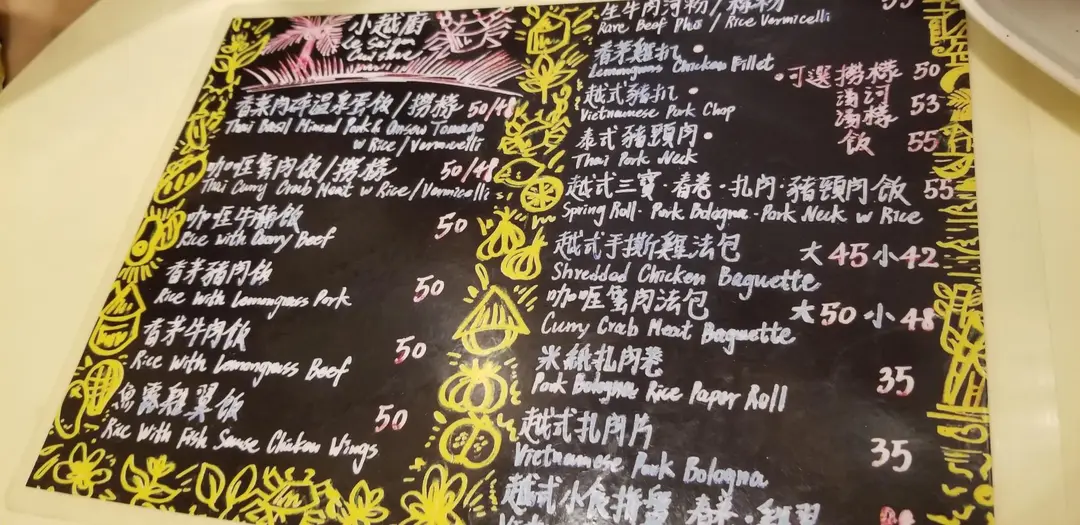 小越廚
Le Saigon
Cuisine
香菜肉碎溫泉蛋飯/撈檬 50/48
Thai Basil Minced Pork & Onsen Tamago
w Rice/Vermicelli
咖喱蟹肉飯/撈檬 50/48
Thai Curry Crab Meat w Rice/Vermicelli
咖喱牛腩飯 50
Rice with Curry Beef
香茅豬肉飯 50
Rice with Lemongrass Pork
香茅牛肉飯 50
Rice with Lemongrass Beef
魚露雞翼飯 50
Rice with Fish Sause Chicken Wings
生牛肉河粉/檬粉 55
Rare Beef Pho / Rice Vermicelli
香茅雞扒 •
Lemongrass Chicken Fillet
越式豬扒 •
Vietnamese Pork Chop
泰式豬頸肉 •
Thai Pork Neck
•可選 撈檬 50
湯河 53
湯檬
飯 55
越式三寶·春卷·扎肉·豬頸肉飯 55
Spring Roll · Pork Bologna · Pork Neck w Rice
越式手撕雞法包 大45 小42
Shredded Chicken Baguette
咖喱蟹肉法包 大50 小48
Curry Crab Meat Baguette
米紙扎肉卷 35
Pork Bologna Rice Paper Roll
越式扎肉片 35
Vietnamese Pork Bologna
越式小食拼盤 春卷·雞翼